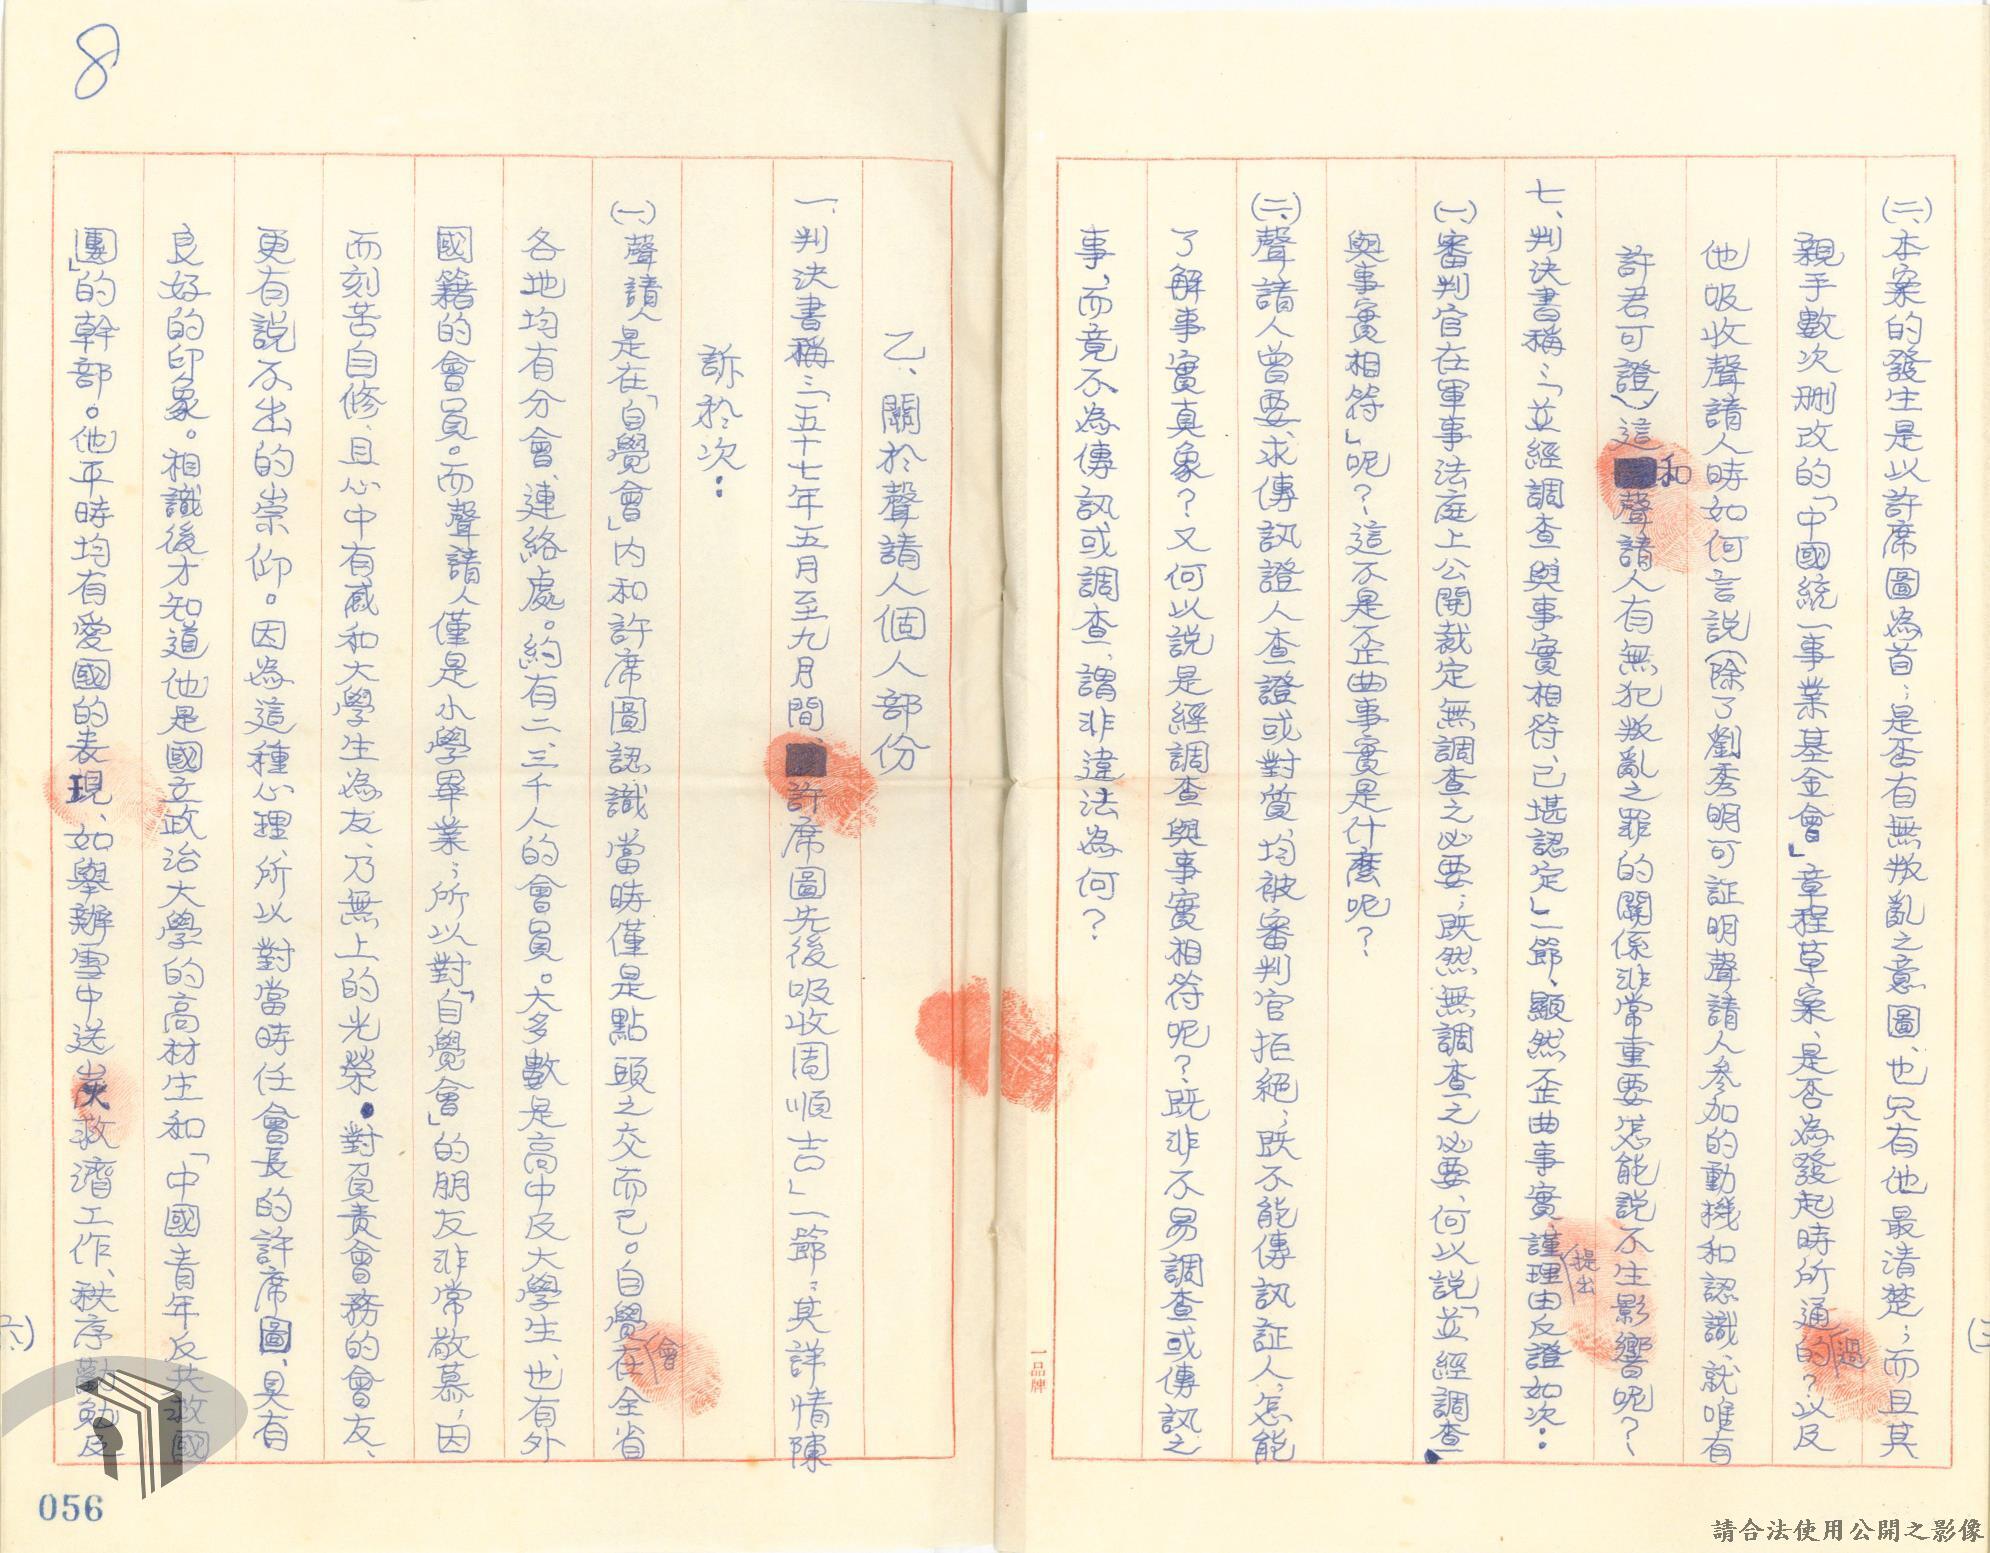 (二)、本案的發生是以許席圖為首，是否有無叛亂之意圖、也只有他最清楚；而且其
親手數次刪改的「中國統一事業基金會」章程草案、是否為發起時所通過的？以及
他吸收聲請人時如何言說（除了劉秀明可証明聲請人參加的動機和認識、就唯有
許君可證）這和聲請人有無犯叛亂之罪的關係非常重要怎能說不生影響呢？、
七、判決書稱：「並經調查與事實相符、已堪認定」一節、顯然歪曲事實、謹提出理由反證如次：
(一)審判官在軍事法庭上公開裁定無調查之必要；既然無調查之必要、何以說「並經調查
與事實相符」呢？這不是歪曲事實是什麼呢？
(二)、聲請人曾要求傳訊證人查證或對質、均被審判官拒絕；既不能傳訊証人，怎能
了解事實真象？又何以說是經調查與事實相符呢？既非不易調查或傳訊之
事，而竟不為傳訊或調查，謂非違法為何？
(三
一品牌
乙、關於聲請人個人部份
一、判決書稱：「五十七年五月至九月間許席圖先後吸收周順吉」一節；其詳情陳
訴於次：
(一)聲請人是在「自覺會」內和許席圖認識當時僅是點頭之交而已。自覺會在全省
各地均有分會、連絡處。約有二、三千人的會員。大多數是高中及大學生、也有外
國籍的會員。而聲請人僅是小學畢業；所以對「自覺會」的朋友非常敬慕，因
而刻苦自修、且心中有感和大學生為友、乃無上的光榮。對負責會務的會友、
更有說不出的崇仰。因為這種心理、所以對當時任會長的許席圖、具有
良好的印象。相識後才知道他是國立政治大學的高材生和「中國青年反共救國
團」的幹部。他平時均有愛國的表現、如舉辦雪中送炭救濟工作、秩序勸勉及
六)
8
056
請合法使用公開之影像